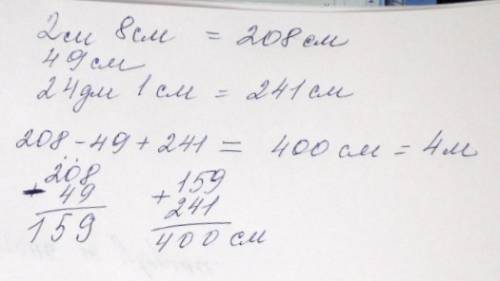 2м 8см = 208см
49см
24дм 1см = 241см
208 - 49 + 241 = 400см = 4м
208 159
- 49 + 241
159 400см